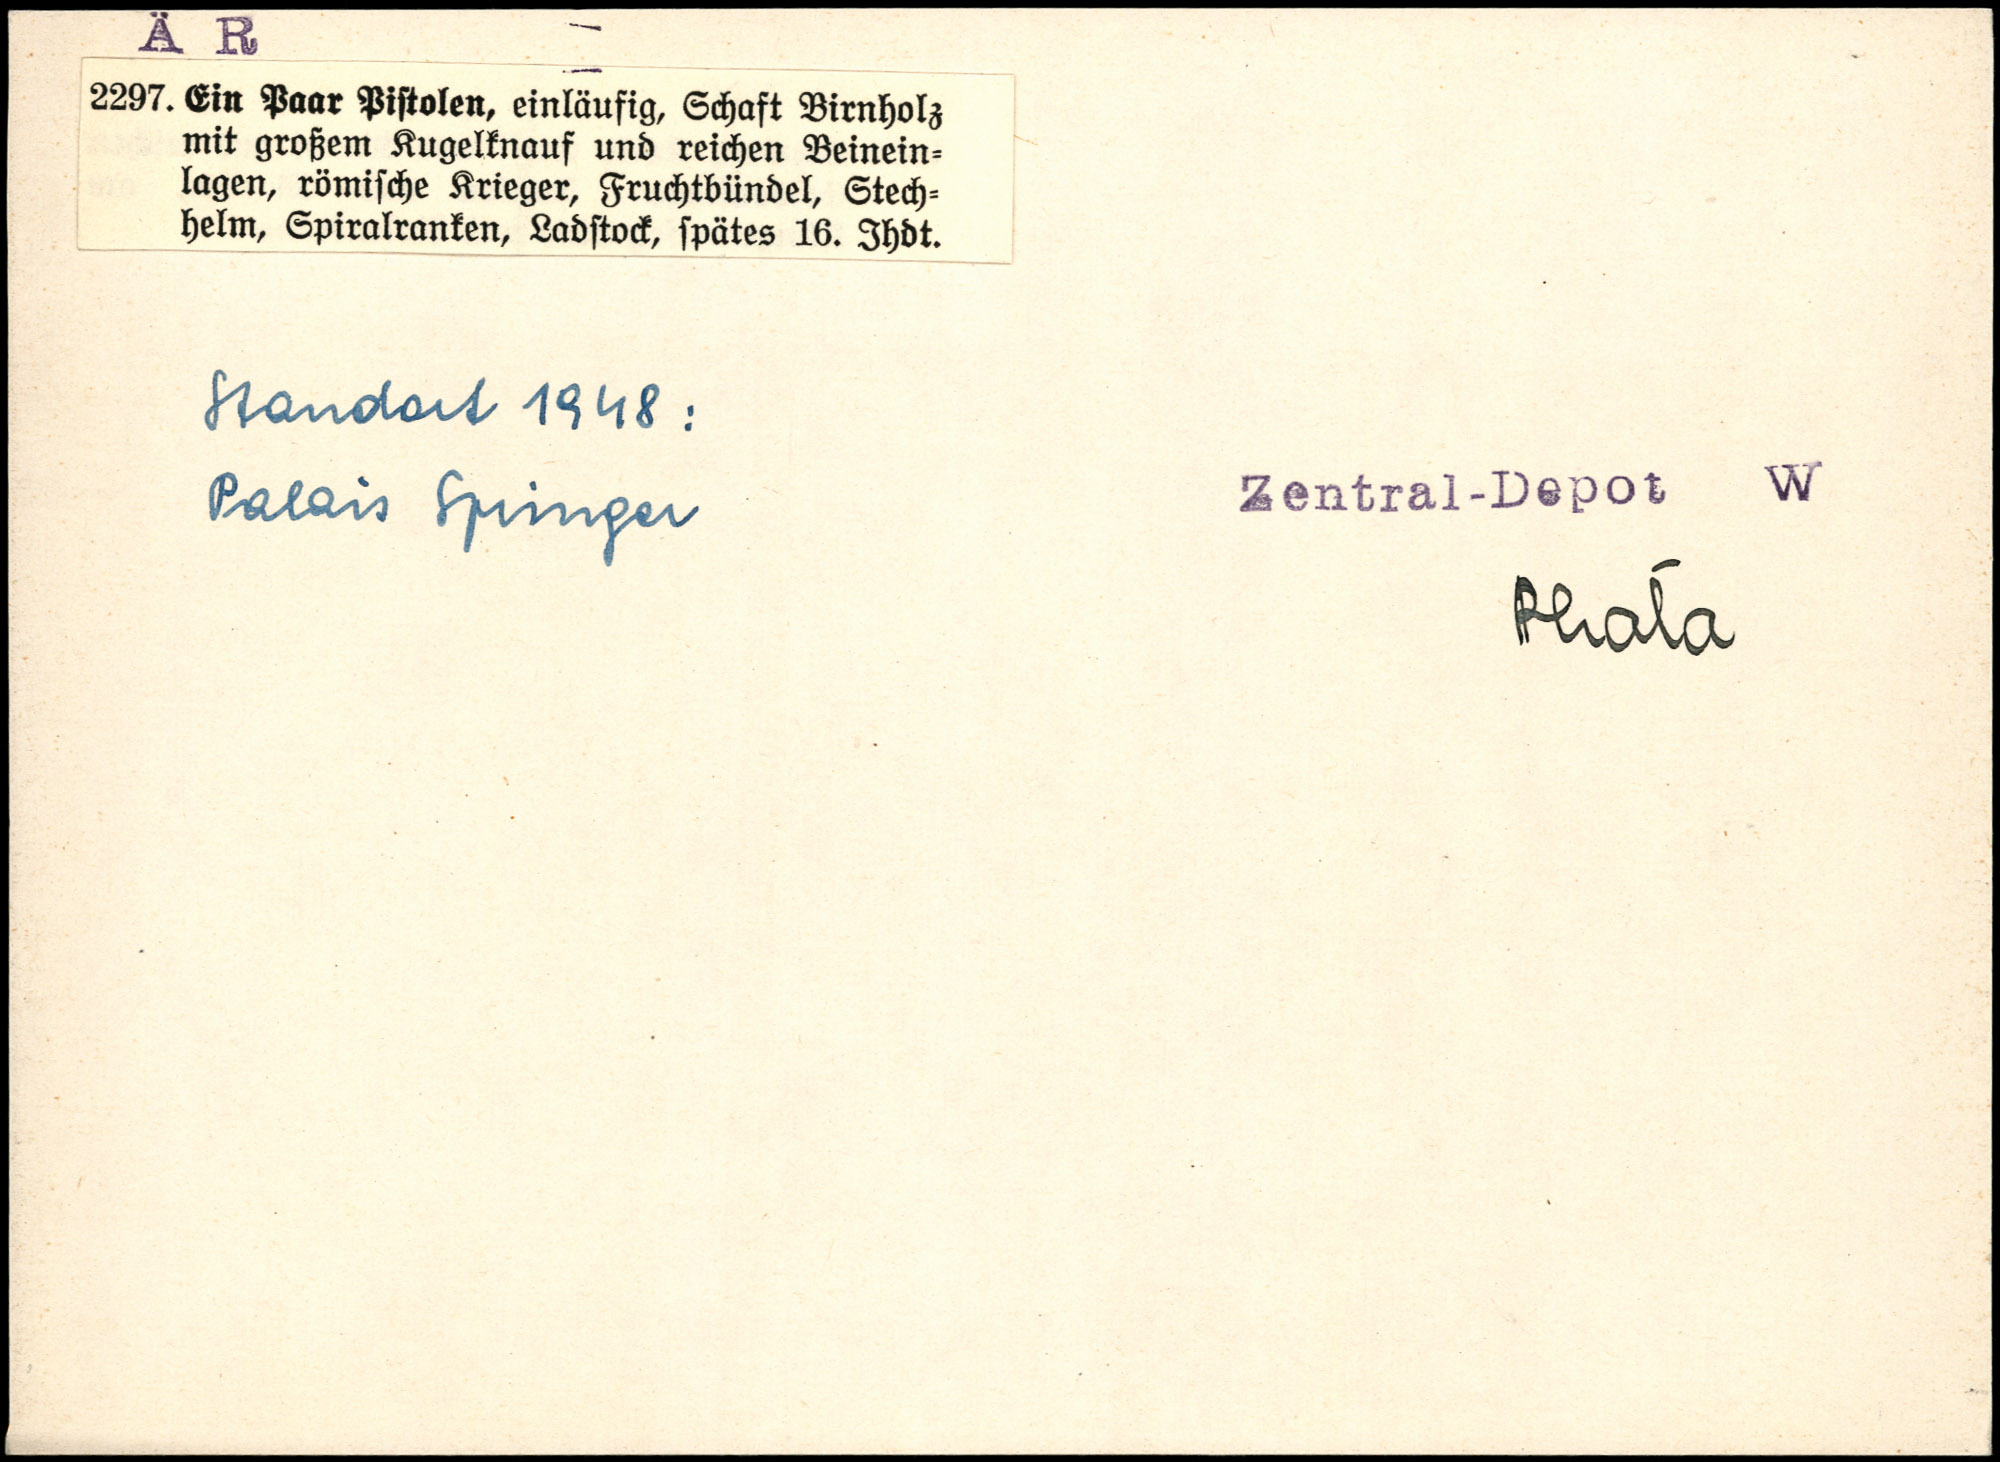 Ä R
2297. Ein Paar Pistolen, einläufig, Schaft Birnholz
mit großem Kugelknauf und reichen Beinein-
lagen, römische Krieger, Fruchtbündel, Stech-
helm, Spiralranken, Ladstock, spätes 16. Jhdt.
Standort 1948:
Palais Springer
Zentral-Depot W